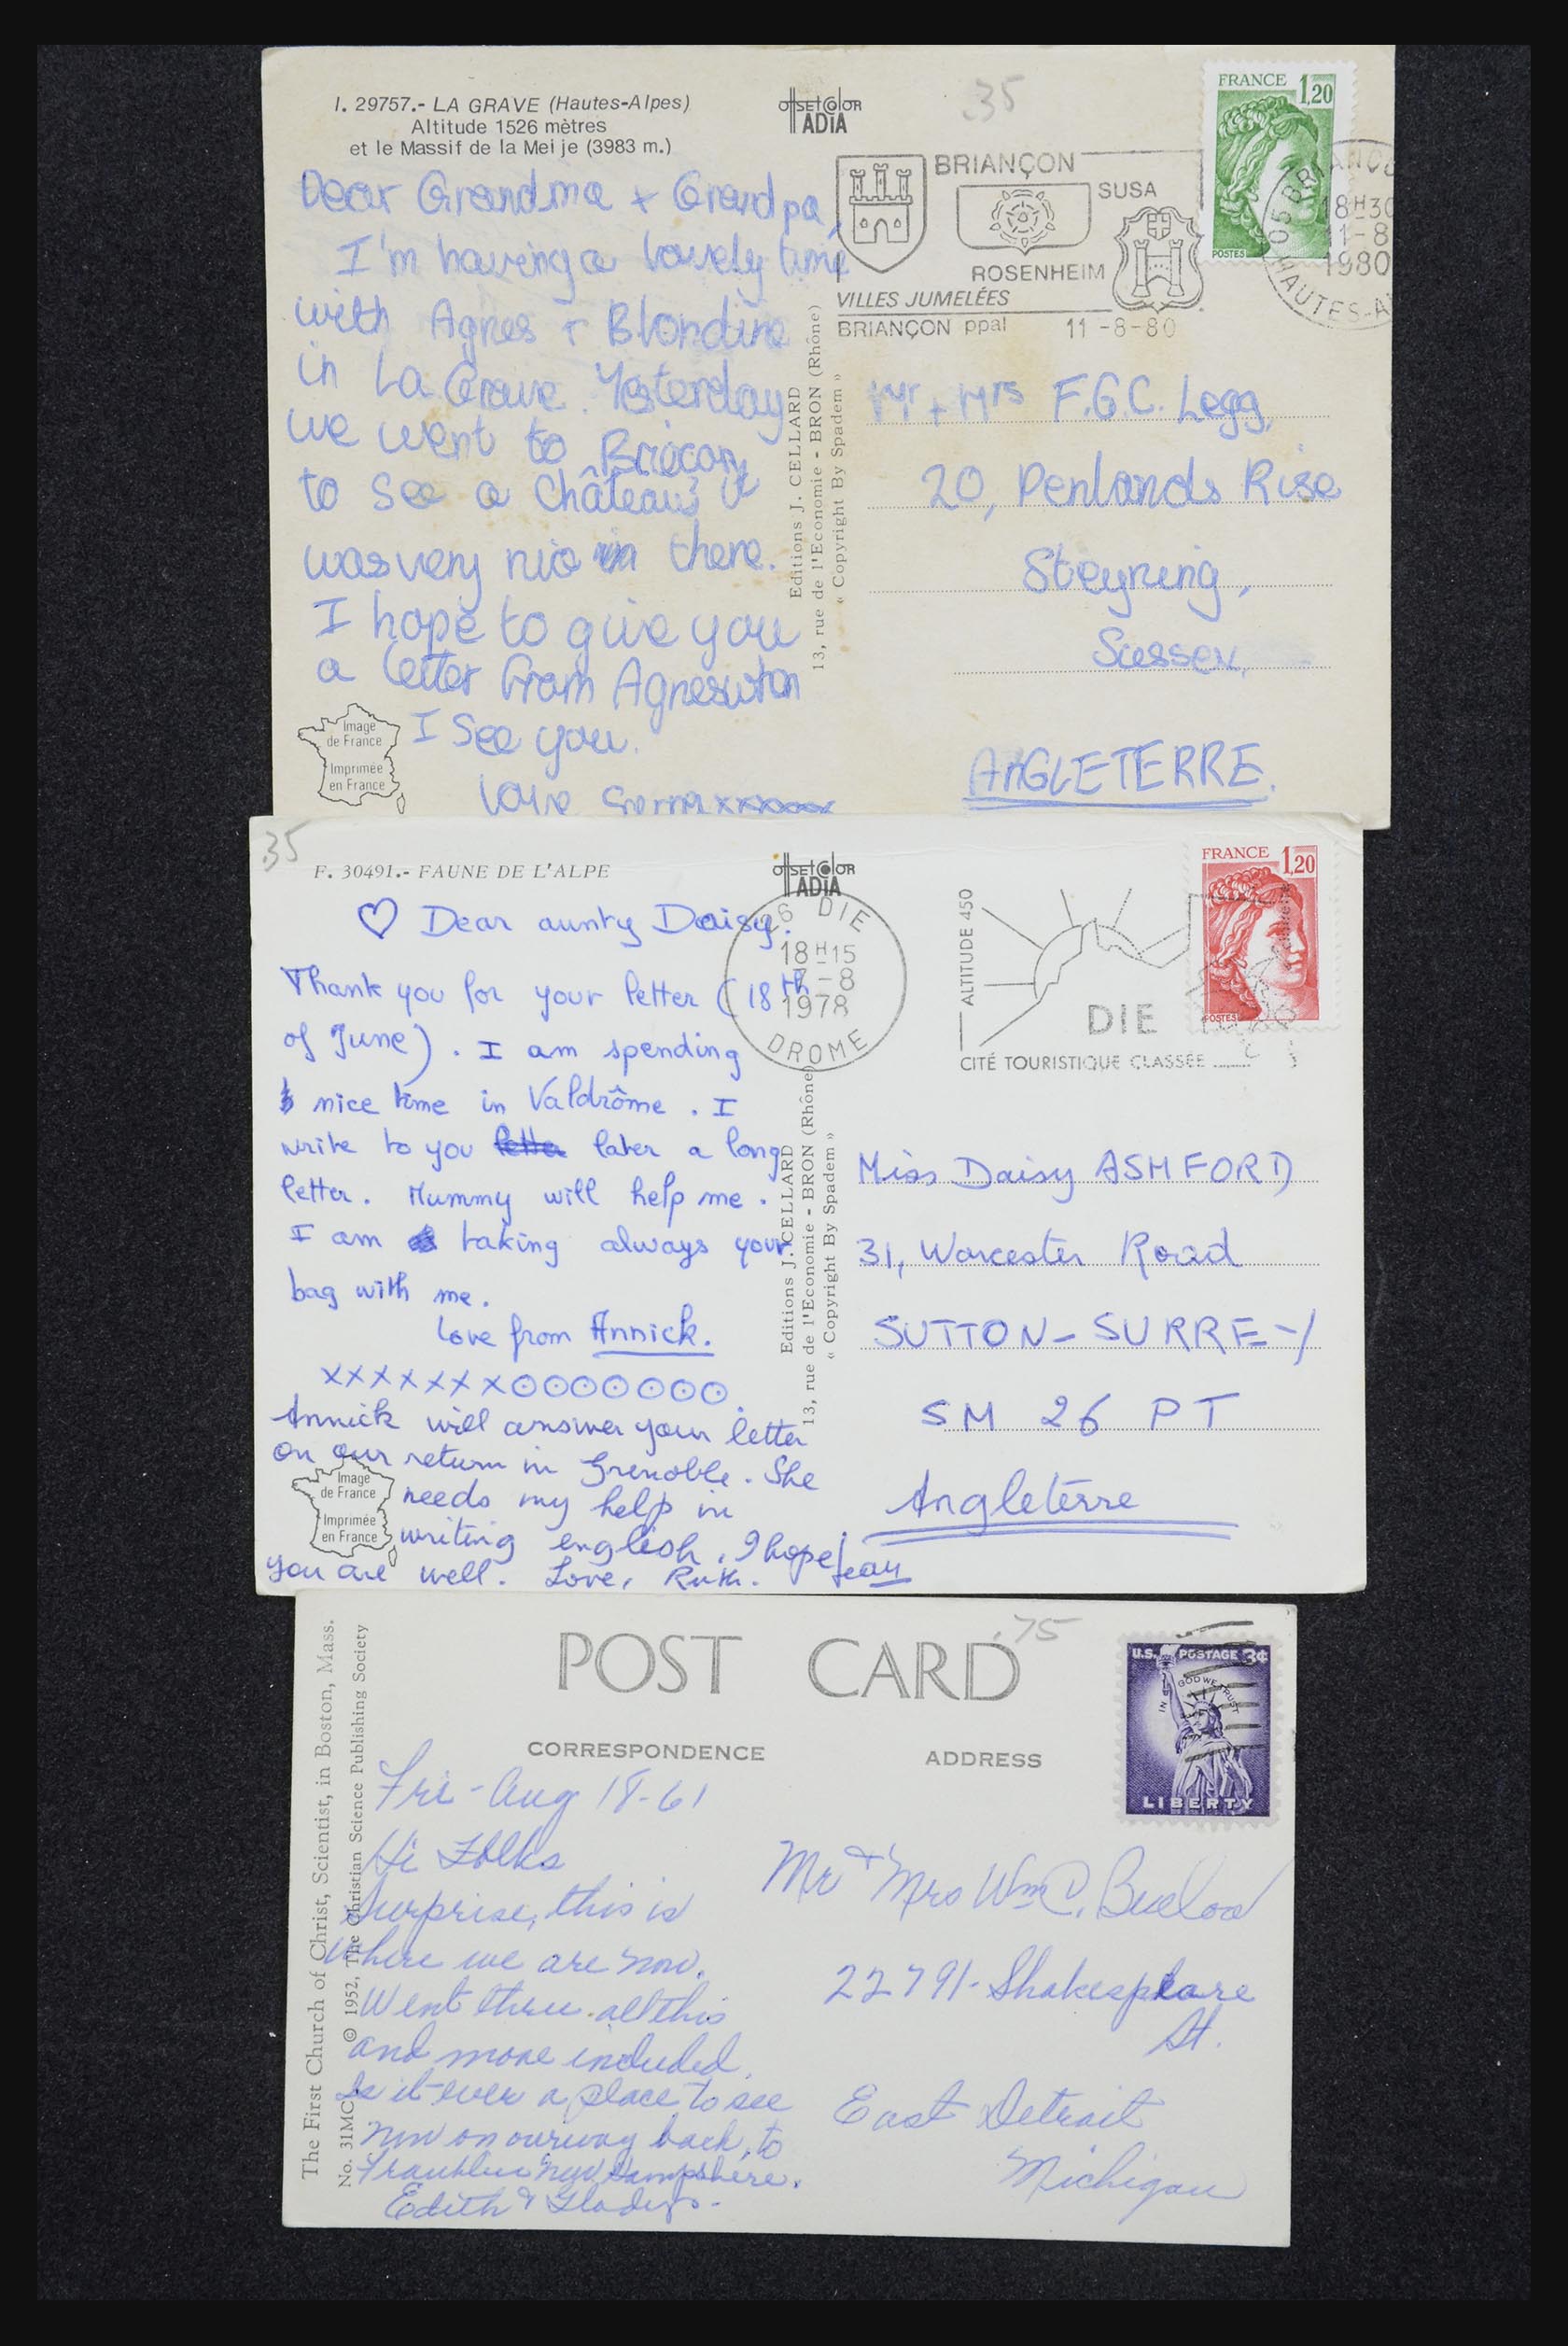 I. 29757.- LA GRAVE (Hautes-Alpes)
Altitude 1526 mètres
et le Massif de la Meije (3983 m.)
offsetcolor
ADIA
35
FRANCE 1,20
POSTES
BRIANÇON
SUSA
ROSENHEIM
VILLES JUMELÉES
BRIANÇON ppal 11-8-80
05 BRIANÇO
18H30
11-8
1980
HAUTES-A
Dear Grandma + Grandpa,
I'm having a lovely time
with Agnes + Blondine
in La Grave. Yesterday
we went to Bricon
to see a Château; it
was very nice in there.
I hope to give you
a letter from Agnes whan
I see you.
Love xxxxxx
Image
de France
Imprimée
en France
Editions J. CELLARD
13, rue de l'Economie - BRON (Rhône)
« Copyright By Spadem »
Mr + Mrs F.G.C. Legg,
20, Penlands Rise
Steyning,
Sussex,
ANGLETERRE.
35
F. 30491.- FAUNE DE L'ALPE
offsetcolor
ADIA
FRANCE 1,20
POSTES
26 DIE
18H15
-8
1978
DROME
ALTITUDE 450
DIE
CITÉ TOURISTIQUE CLASSÉE
♡ Dear aunty Daisy.
Thank you for your letter (18th
of June). I am spending
nice time in Valdrôme. I
write to you later a long
letter. Mummy will help me.
I am taking always your
bag with me.
love from Annick.
xxxxxxx⊙⊙⊙⊙⊙⊙⊙.
Annick will answer your letter
on our return in Grenoble. She
needs my help in
writing english. I hope
you are well. Love, Ruth. Jean
Image
de France
Imprimée
en France
Editions J. CELLARD
13, rue de l'Economie - BRON (Rhône)
« Copyright By Spadem »
Miss Daisy ASHFORD
31, Worcester Road
SUTTON - SURREY
SM 26 PT
Angleterre
POST CARD
.75
CORRESPONDENCE
ADDRESS
U.S. POSTAGE 3¢
IN GOD WE TRUST
LIBERTY
The First Church of Christ, Scientist, in Boston, Mass.
No. 31MC © 1952, The Christian Science Publishing Society
Fri - Aug 18-61
Hi Folks
Surprise, this is
where we are now.
Went thru all this
and more included.
Is it ever a place to see
now on our way back to
Franklin New Hampshire.
Edith & Gladys.
Mr & Mrs Wm C.
22791 - Shakespeare
St.
East Detroit
Michigan